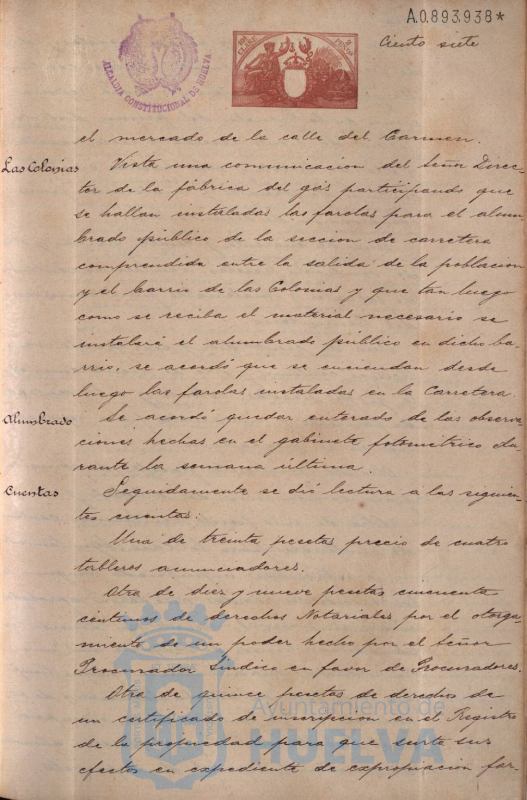 A.0.893.938*
Ciento siete
ALCALDIA CONSTITUCIONAL DE HUELVA
el mercado de la calle del Carmen.
Las Colonias
Vista una comunicacion del Señor Direc-
tor de la fábrica del gás participando que
se hallan instaladas las farolas para el alum
brado público de la seccion de carretera
comprendida entre la salida de la poblacion
y el barrio de las Colonias y que tan luego
como se reciba el material necesario se
instalará el alumbrado público en dicho ba-
rrio, se acordó que se enciendan desde
luego las farolas instaladas en la Carretera.
Alumbrado
Se acordó quedar enterado de las observa
ciones hechas en el gabinete fotométrico du
rante la semana última.
Cuentas
Seguidamente se dió lectura a las siguien-
tes cuentas:
Una de treinta pesetas precio de cuatro
tableros anunciadores.
Otra de diez y nueve pesetas cincuenta
céntimos de derechos Notariales por el otorga
miento de un poder hecho por el Señor
Procurador Síndico en favor de Procuradores.
Otra de quince pesetas de derechos de
un certificado de inscripcion en el Registro
de la propiedad para que surta sus
efectos en expediente de expropiacion for-
Ayuntamiento de
HUELVA